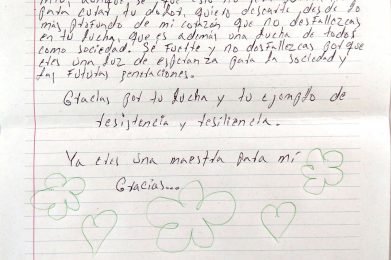 para curar tu dolor, quiero desearte desde lo
más profundo de mi corazón que no desfallezcas
en tu lucha, que es además una lucha de todos
como sociedad. Se fuerte y no desfallezcas porque
eres una luz de esperanza para la sociedad y
las futuras generaciones.
Gracias por tu lucha y tu ejemplo de
resistencia y resiliencia.
Ya eres una maestra para mí
Gracias...